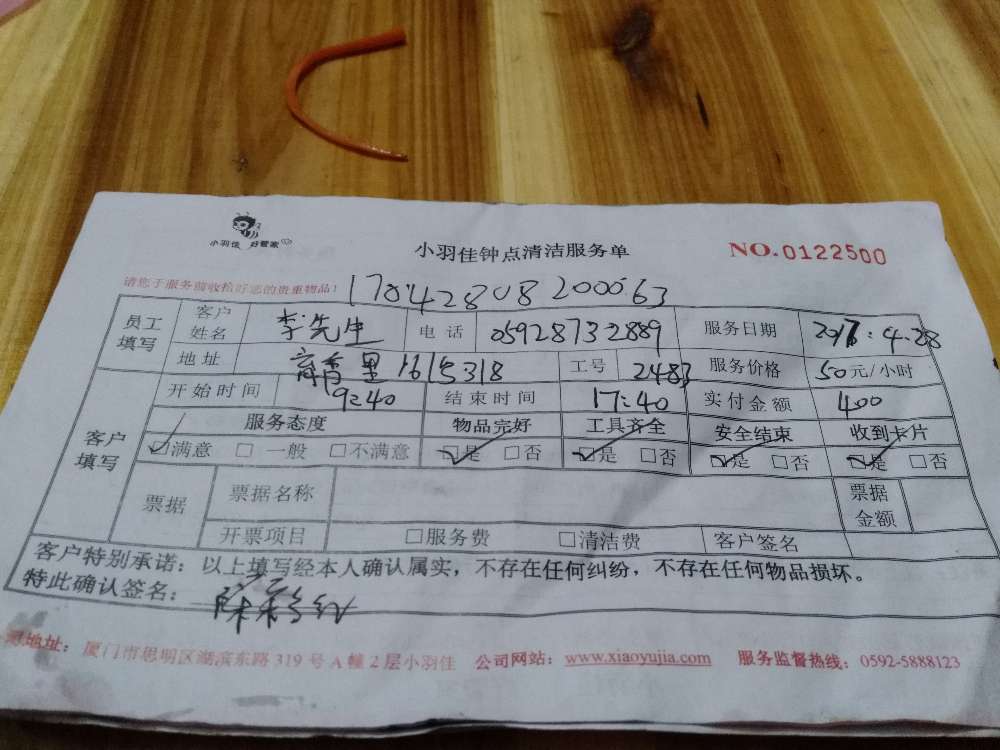 小羽佳 好管家
小羽佳钟点清洁服务单
NO.0122500
请您于服务前收检好您的贵重物品!
17042808200063
员工填写 客户姓名 李先生 电话 05928732889 服务日期 2017:4.28
地址 育秀里 工号 2483 服务价格 50元/小时
客户填写 开始时间 9:40 结束时间 17:40 实付金额 400
服务态度 物品完好 工具齐全 安全结束 收到卡片
☑满意 □一般 □不满意 ☑是 □否 ☑是 □否 ☑是 □否 ☑是 □否
票据 票据名称 票据金额
开票项目 □服务费 □清洁费 客户签名
客户特别承诺:以上填写经本人确认属实,不存在任何纠纷,不存在任何物品损坏。
特此确认签名:
地址:厦门市思明区湖滨东路319号A幢2层小羽佳 公司网站:www.xiaoyujia.com 服务监督热线:0592-5888123